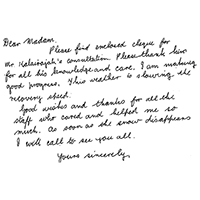 Dear Madam,
Please find enclosed cheque for
Mr Kalairajah's consultation. Please thank him
for all his knowledge and care. I am making
good progress. This weather is slowing the
recovery speed.
Good wishes and thanks for all the
staff who cared and helped me so
much. As soon as the snow disappears
I will call to see you all.
Yours sincerely